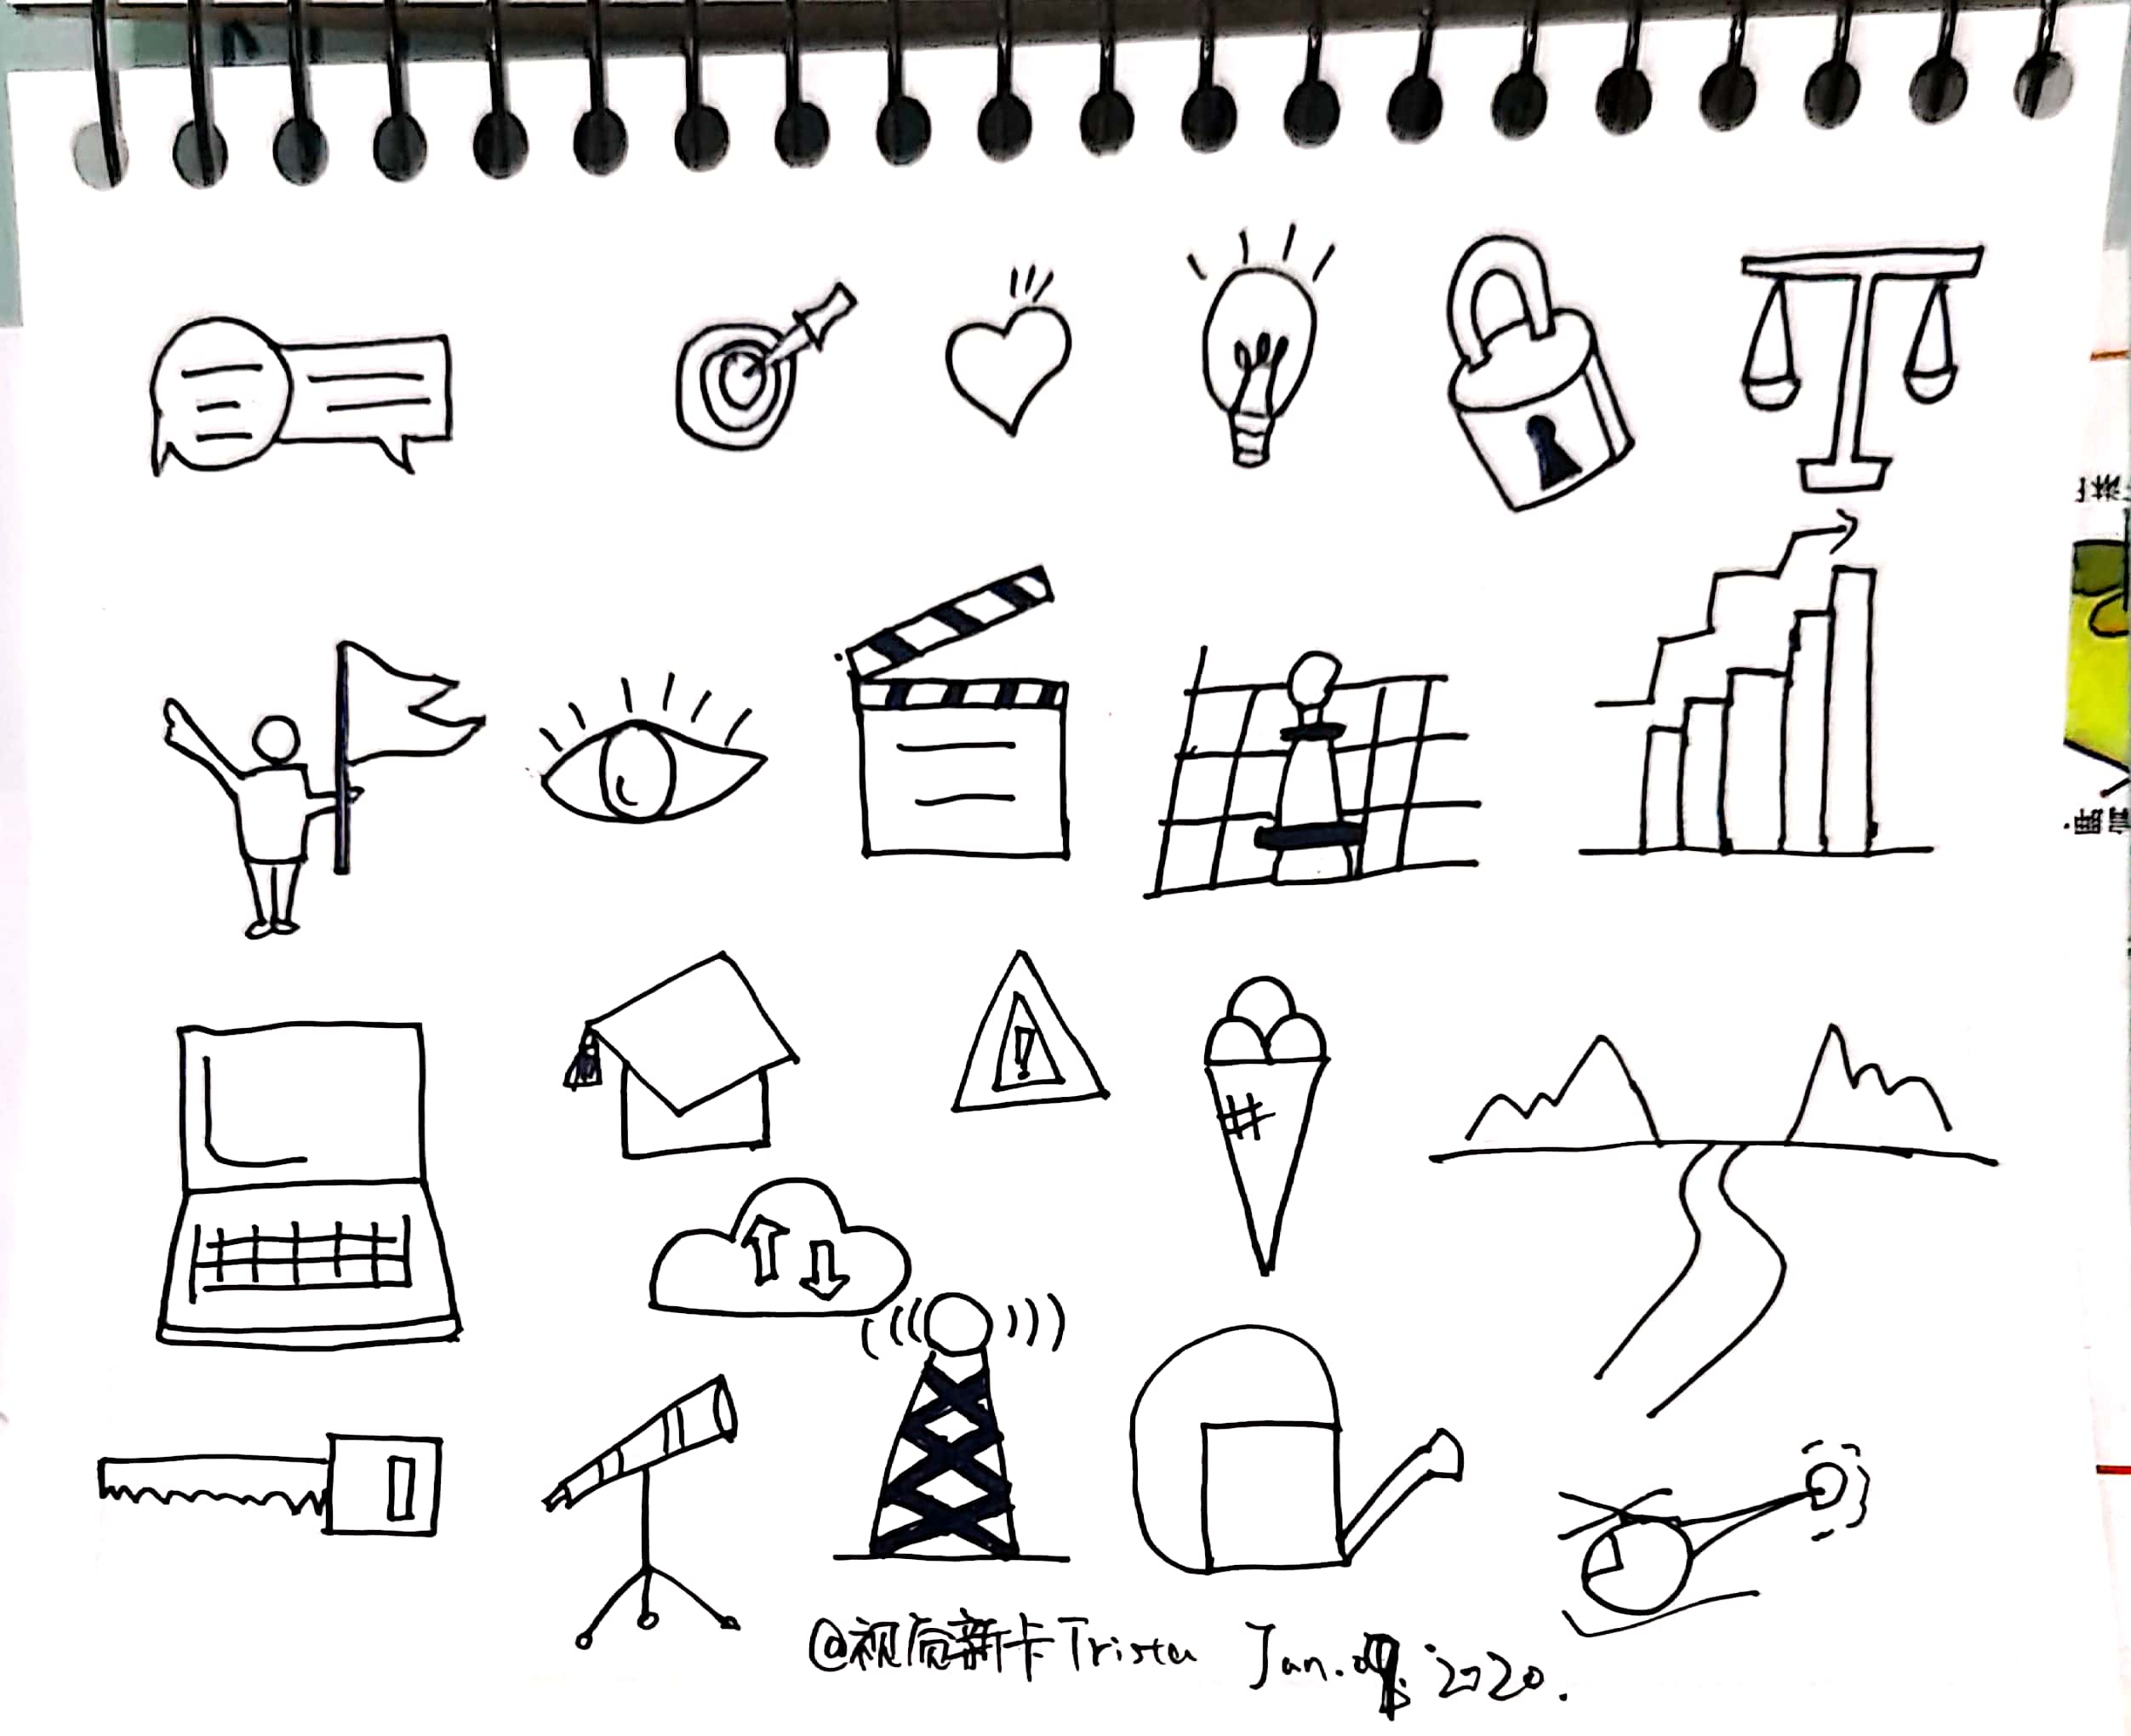 @视觉新卡Trista Jan. 2020.